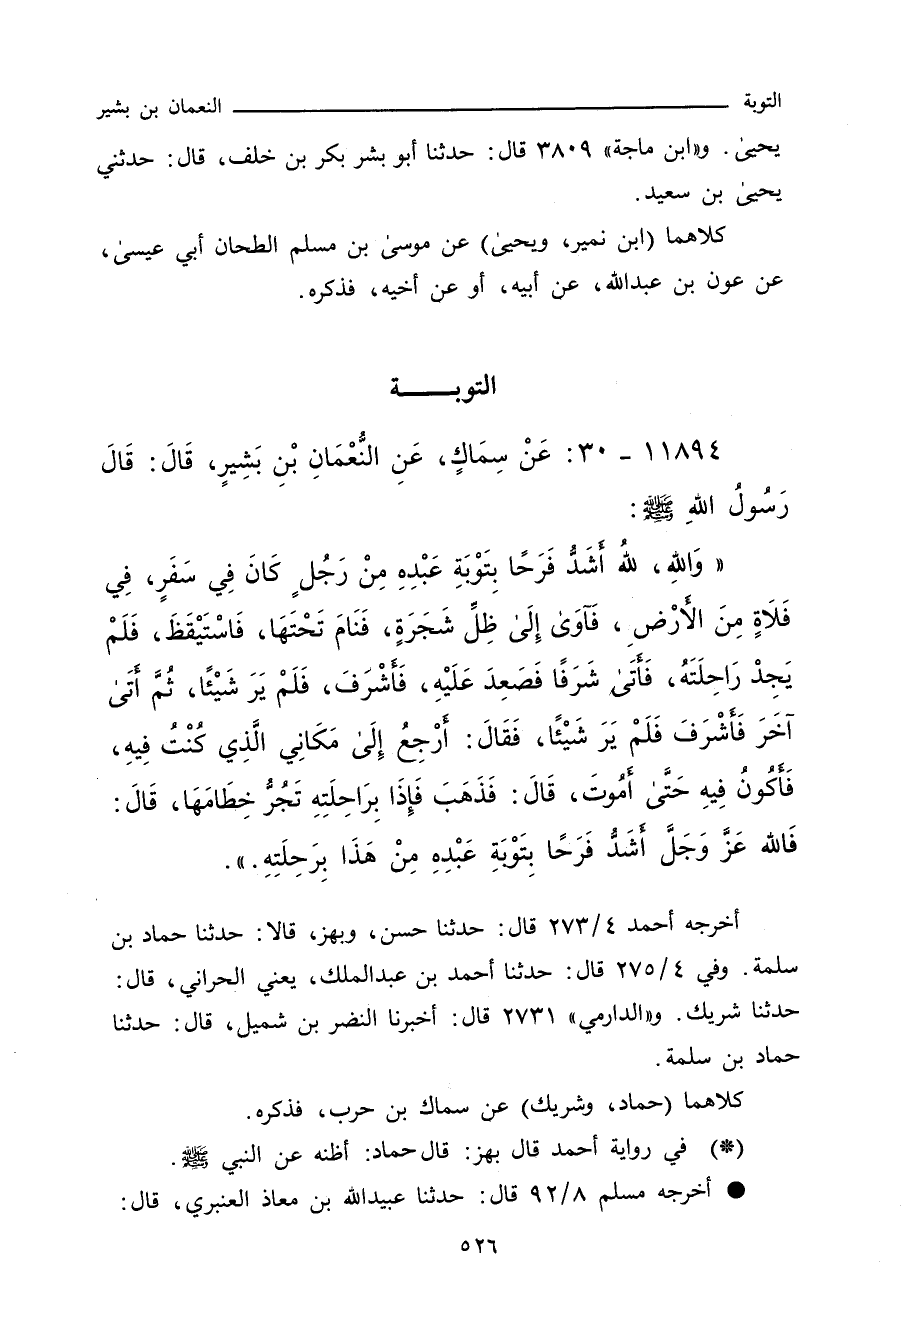 التوبة ــــــــــــــــــــــــــــــــ النعمان بن بشير
يحيىٰ. و«ابن ماجة» ٣٨٠٩ قال: حدثنا أبو بشر بكر بن خلف، قال: حدثني
يحيىٰ بن سعيد.
كلاهما (ابن نمير، ويحيىٰ) عن موسىٰ بن مسلم الطحان أبي عيسىٰ،
عن عون بن عبدالله، عن أبيه، أو عن أخيه، فذكره.
التوبـــــة
١١٨٩٤ ـ ٣٠: عَنْ سِمَاكٍ، عَنِ النُّعْمَانِ بْنِ بَشِيرٍ، قَالَ: قَالَ
رَسُولُ اللهِ ﷺ:
« وَاللهِ، للهُ أَشَدُّ فَرَحًا بِتَوْبَةِ عَبْدِهِ مِنْ رَجُلٍ كَانَ فِي سَفَرٍ، فِي
فَلَاةٍ مِنَ الْأَرْضِ، فَآوَىٰ إِلَىٰ ظِلِّ شَجَرَةٍ، فَنَامَ تَحْتَهَا، فَاسْتَيْقَظَ، فَلَمْ
يَجِدْ رَاحِلَتَهُ، فَأَتَىٰ شَرَفًا فَصَعِدَ عَلَيْهِ، فَأَشْرَفَ، فَلَمْ يَرَ شَيْئًا، ثُمَّ أَتَىٰ
آخَرَ فَأَشْرَفَ فَلَمْ يَرَ شَيْئًا، فَقَالَ: أَرْجِعُ إِلَىٰ مَكَانِي الَّذِي كُنْتُ فِيهِ،
فَأَكُونُ فِيهِ حَتَّىٰ أَمُوتَ، قَالَ: فَذَهَبَ فَإِذَا بِرَاحِلَتِهِ تَجُرُّ خِطَامَهَا، قَالَ:
فَالله عَزَّ وَجَلَّ أَشَدُّ فَرَحًا بِتَوْبَةِ عَبْدِهِ مِنْ هَذَا بِرَحِلَتِهِ.».
أخرجه أحمد ٢٧٣/٤ قال: حدثنا حسن، وبهز، قالا: حدثنا حماد بن
سلمة. وفي ٢٧٥/٤ قال: حدثنا أحمد بن عبدالملك، يعني الحراني، قال:
حدثنا شريك. و«الدارمي» ٢٧٣١ قال: أخبرنا النضر بن شميل، قال: حدثنا
حماد بن سلمة.
كلاهما (حماد، وشريك) عن سماك بن حرب، فذكره.
(*) في رواية أحمد قال بهز: قال حماد: أظنه عن النبي ﷺ.
● أخرجه مسلم ٩٢/٨ قال: حدثنا عبيدالله بن معاذ العنبري، قال:
٥٢٦